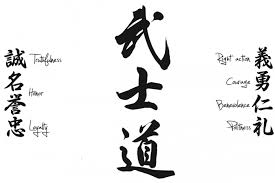 誠名誉忠
Truthfulness
Honor
Loyalty
武士道
Right action
Courage
Benevolence
Politeness
義勇仁礼